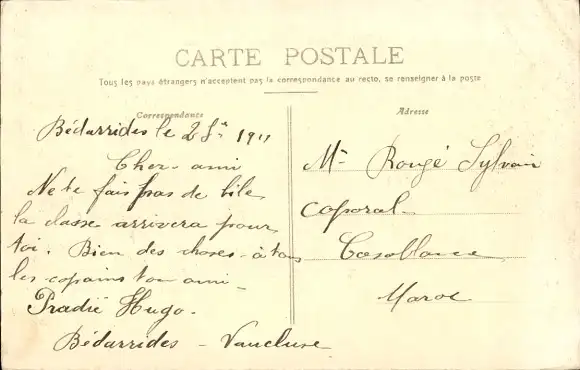 CARTE POSTALE
Tous les pays étrangers n'acceptent pas la correspondance au recto, se renseigner à la poste
Correspondance
Bédarrides le 2 1911
Cher ami
Ne te fais pas de bile
la classe arrivera pour
toi. Bien des choses à tous
les copains ton ami
Pradié Hugo.
Bédarrides - Vaucluse
Adresse
Mr Rougé Sylvain
Caporal
Casablanca
Maroc